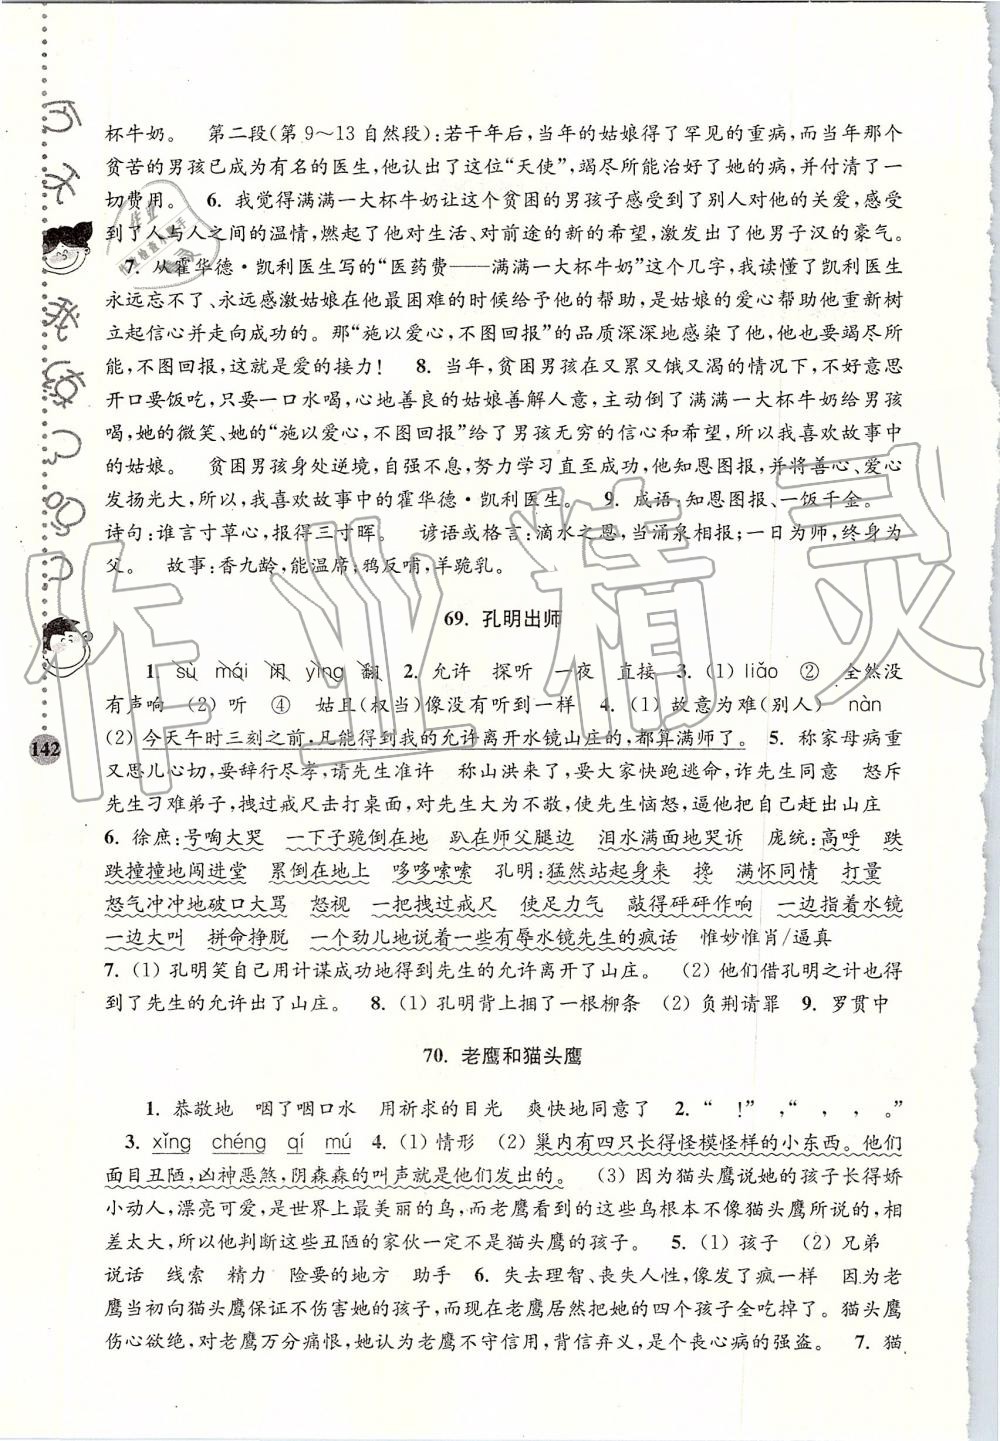 杯牛奶。　第二段(第 9～13 自然段):若干年后,当年的姑娘得了罕见的重病,而当年那个
贫苦的男孩已成为有名的医生,他认出了这位“天使”,竭尽所能治好了她的病,并付清了一
切费用。　6. 我觉得满满一大杯牛奶让这个贫困的男孩子感受到了人们对他的关爱,感受
到了人与人之间的温情,燃起了他对生活、对前途的新的希望,激发出了他男子汉的豪气。
7. 从霍华德·凯利医生写的“医药费——满满一大杯牛奶”这个几字,我读懂了凯利医生
永远忘不了、永远感激姑娘在他最困难的时候给予他的帮助,是姑娘的爱心帮助他重新树
立起信心并走向成功的。那“施以爱心,不图回报”的品质深深地感染了他,他也要竭尽所
能,不图回报,这就是爱的接力!　8. 当年,贫困男孩在又累又饿又渴的情况下,不好意思
开口要饭吃,只要一口水喝,心地善良的姑娘善解人意,主动倒了满满一大杯牛奶给男孩
喝,她的微笑、她的“施以爱心,不图回报”给了男孩无穷的信心和希望,所以我喜欢故事中
的姑娘。　贫困男孩身处逆境,自强不息,努力学习直至成功,他知恩图报,并将善心、爱心
发扬光大,所以,我喜欢故事中的霍华德·凯利医生。　9. 成语:知恩图报、一饭千金。
诗句:谁言寸草心,报得三寸晖。　谚语或格言:滴水之恩,当涌泉相报;一日为师,终身为
父。　故事:香九龄,能温席;鸦反哺,羊跪乳。
69. 孔明出师
1. sù　mái　闲　yìng　翻　2. 允许　探听　一夜　直接　3. (1) liǎo　②　全然没
有声响　(2) 听　④　姑且(权当)像没有听到一样　4. (1) 故意为难(别人)　nàn
(2) 今天午时三刻之前,凡能得到我的允许离开水镜山庄的,都算满师了。　5. 称家母病重
又思儿心切,要辞行尽孝,请先生准许　称山洪来了,要大家快跑逃命,诈先生同意　怒斥
先生刁难弟子,拽过戒尺击打桌面,对先生大为不敬,使先生恼怒,逼他把自己赶出山庄
6. 徐庶:号啕大哭　一下子跪倒在地　趴在师父腿边　泪水满面地哭诉　庞统:高呼　跌
跌撞撞地闯进堂　累倒在地上　哆哆嗦嗦　孔明:猛然站起身来　搀　满怀同情　打量
怒气冲冲地破口大骂　怒视　一把拽过戒尺　使足力气　敲得砰砰作响　一边指着水镜
一边大叫　拼命挣脱　一个劲儿地说着一些有辱水镜先生的疯话　惟妙惟肖/逼真
7. (1) 孔明笑自己用计谋成功地得到先生的允许离开了山庄。　(2) 他们借孔明之计也得
到了先生的允许出了山庄。　8. (1) 孔明背上捆了一根柳条　(2) 负荆请罪　9. 罗贯中
70. 老鹰和猫头鹰
1. 恭敬地　咽了咽口水　用祈求的目光　爽快地同意了　2. “　!”　,“　,　,　。”
3. xǐng　chéng　qí　mú　4. (1) 情形　(2) 巢内有四只长得怪模怪样的小东西。他们
面目丑陋,凶神恶煞,阴森森的叫声就是他们发出的。　(3) 因为猫头鹰说她的孩子长得娇
小动人,漂亮可爱,是世界上最美丽的鸟,而老鹰看到的这些鸟根本不像猫头鹰所说的,相
差太大,所以他判断这些丑陋的家伙一定不是猫头鹰的孩子。　5. (1) 孩子　(2) 兄弟
说话　线索　精力　险要的地方　助手　6. 失去理智、丧失人性,像发了疯一样　因为老
鹰当初向猫头鹰保证不伤害她的孩子,而现在老鹰居然把她的四个孩子全吃掉了。猫头鹰
伤心欲绝,对老鹰万分痛恨,她认为老鹰不守信用,背信弃义,是个丧心病的强盗。　7. 猫
142
作业精灵